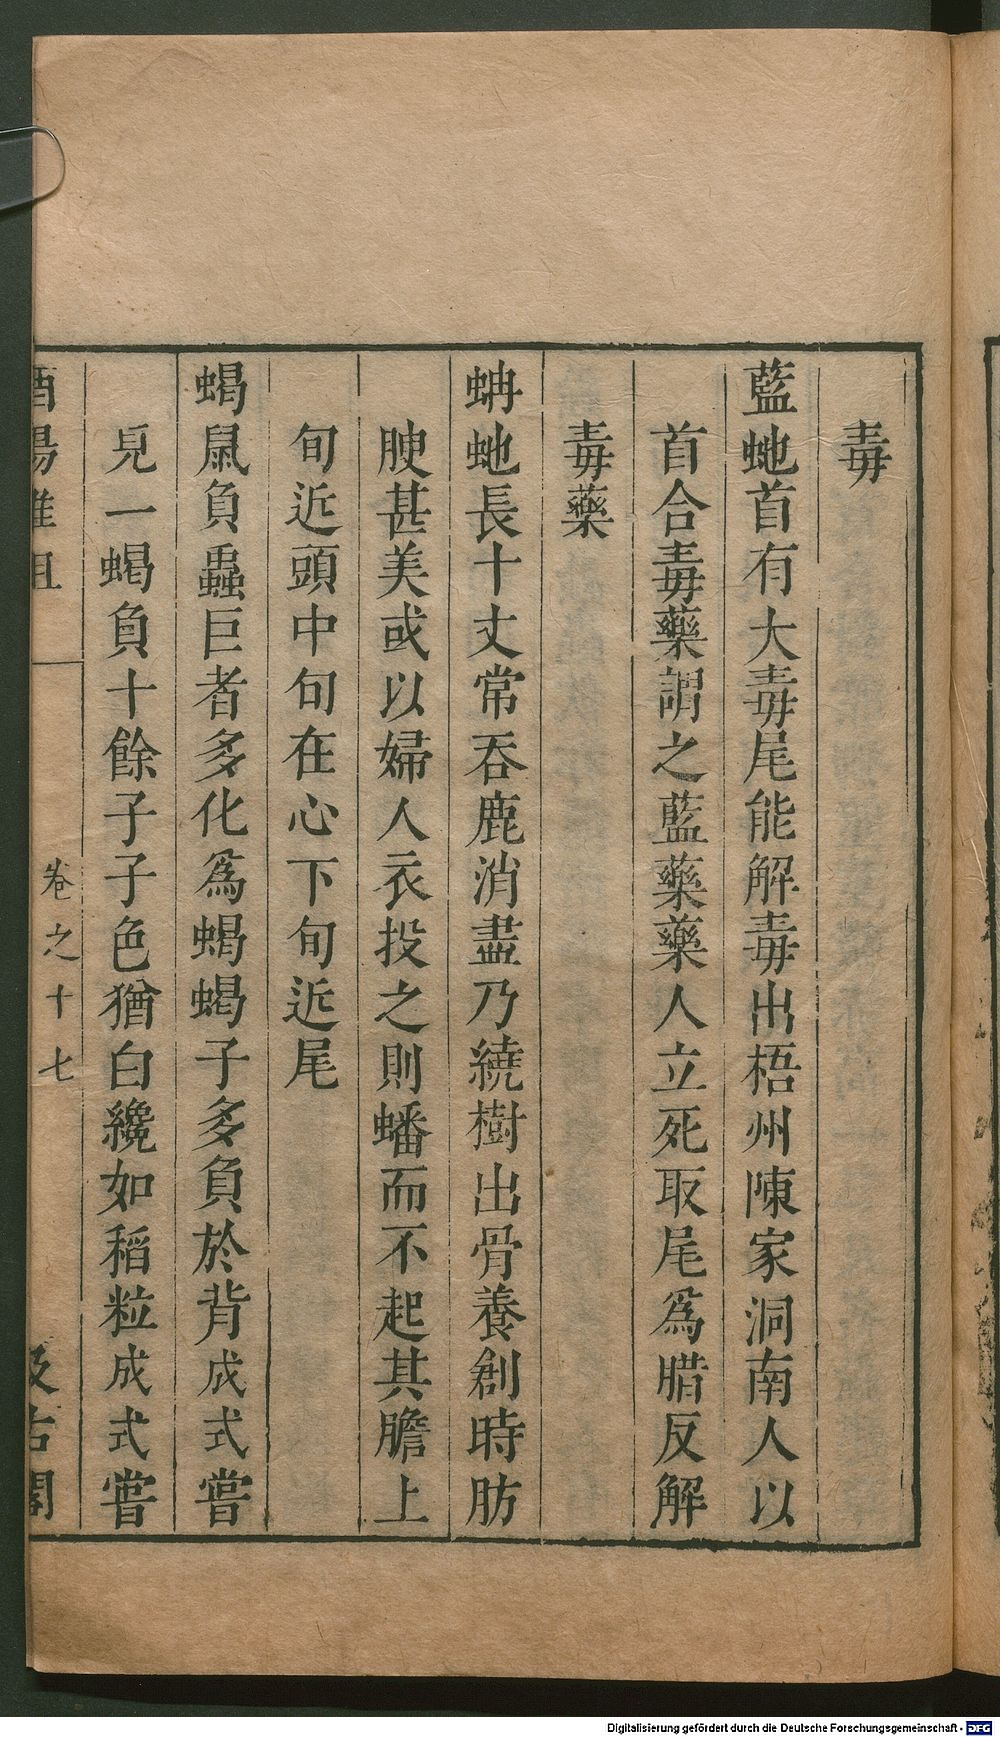 毒
藍虵首有大毒尾能解毒出梧州陳家洞南人以
首合毒藥謂之藍藥藥人立死取尾為腊反解
毒藥
蚺虵長十丈常吞鹿消盡乃繞樹出骨養創時肪
腴甚美或以婦人衣投之則蟠而不起其膽上
旬近頭中旬在心下旬近尾
蝎鼠負蟲巨者多化為蝎蝎子多負於背成式嘗
見一蝎負十餘子子色猶白纔如稻粒成式嘗
酉陽雜俎
卷之十七
汲古閣
Digitalisierung gefördert durch die Deutsche Forschungsgemeinschaft - DFG